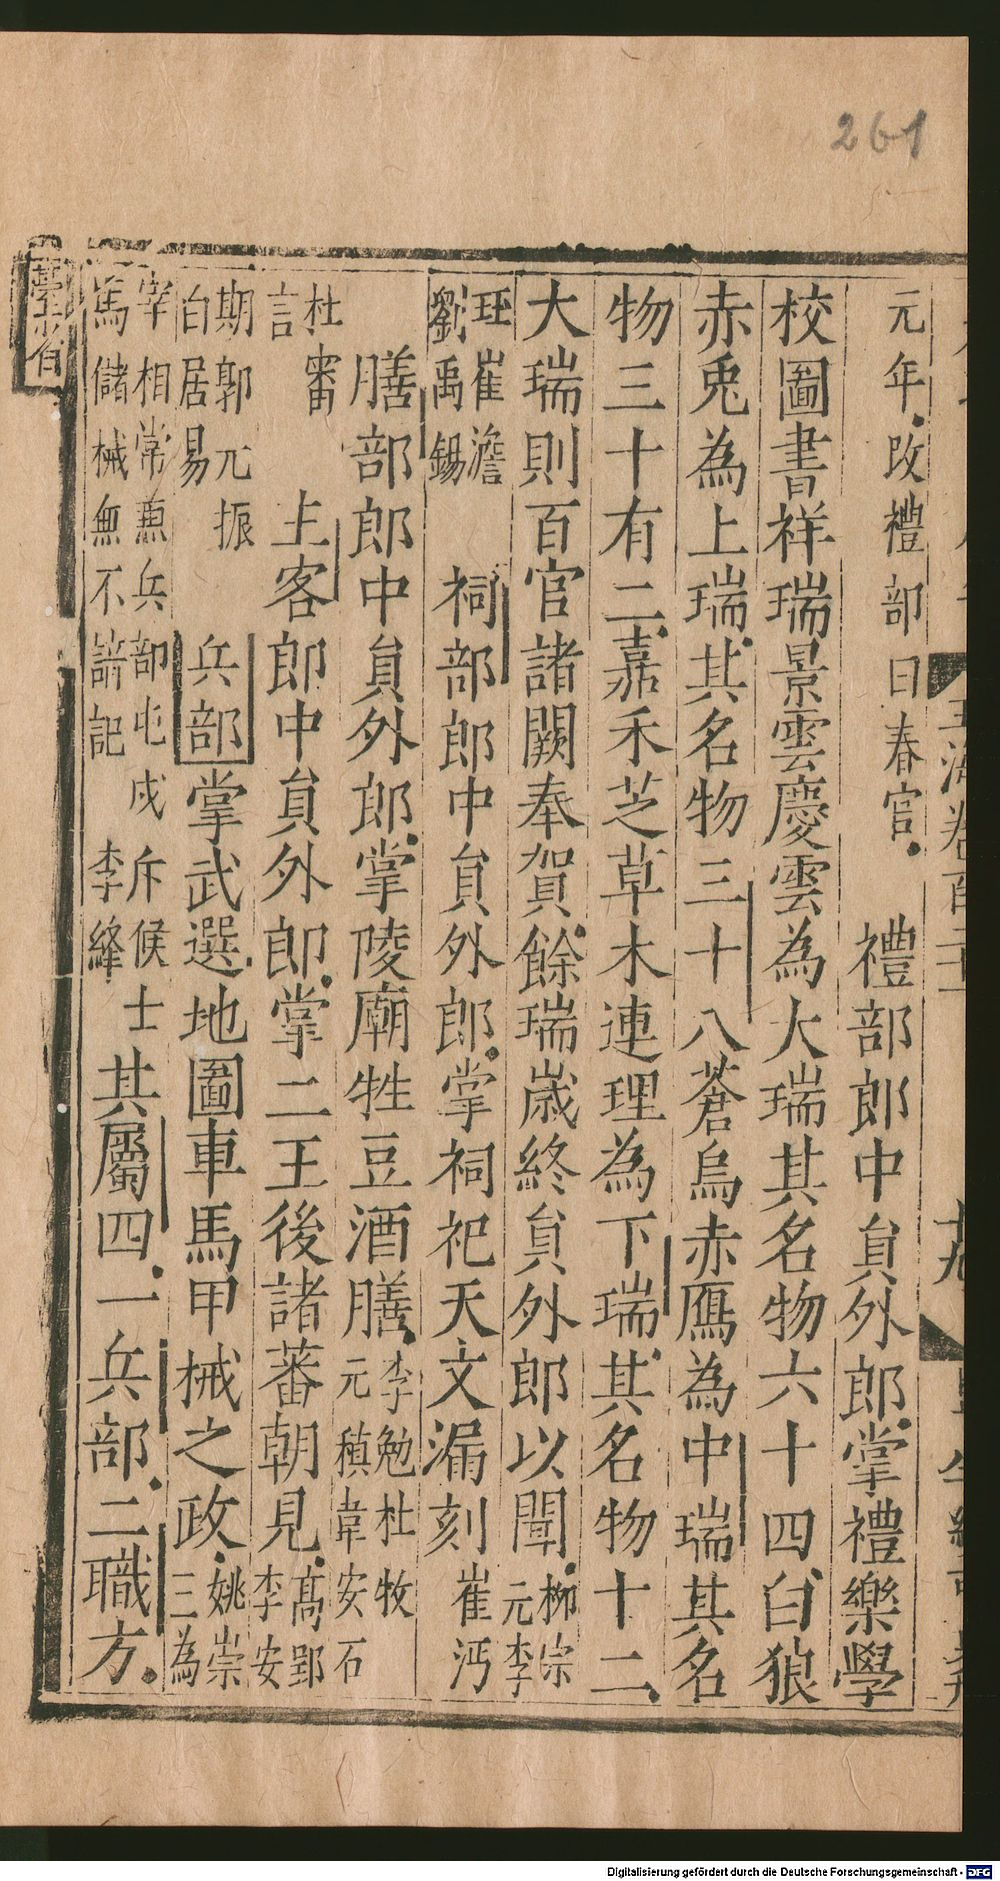 261
臺省
元年改禮部曰春官 禮部郎中貟外郎掌禮樂學
校圖書祥瑞景雲慶雲為大瑞其名物六十四白狼
赤兎為上瑞其名物三十八蒼烏赤鴈為中瑞其名
物三十有二嘉禾芝草木連理為下瑞其名物十二
大瑞則百官諸闕奉賀餘瑞歳終貟外郎以聞柳宗元李
珏崔澹劉禹錫 祠部郎中貟外郎掌祠祀天文漏刻崔沔
膳部郎中貟外郎掌陵廟牲豆酒膳李勉杜牧元稹韋安石
杜審言 主客郎中貟外郎掌二王後諸蕃朝見髙郢李安
期郭元振白居易 兵部掌武選地圖車馬甲械之政姚崇三為
宰相常兼兵部屯戍斥候士馬儲械無不諳記 李絳 其屬四一兵部二職方
Digitalisierung gefördert durch die Deutsche Forschungsgemeinschaft - DFG